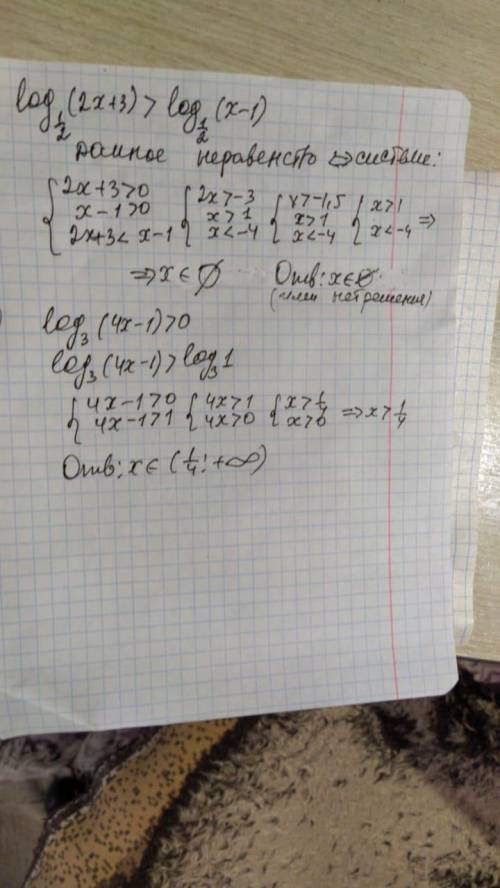 log_{1/2}(2x+3) > log_{1/2}(x-1)
данное неравенство ⇔ системе:
{2x+3>0 {2x>-3 {x>-1,5 {x>1
x-1>0 x>1 x>1 x<-4 ⇒
2x+3<x-1 x<-4 x<-4
⇒ x ∈ ∅ Отв: x∈∅.
(или нет решения)
log_3(4x-1)>0
log_3(4x-1)>log_3 1
{4x-1>0 {4x>1 {x>1/4 ⇒ x>1/4
4x-1>1 4x>0 x>0
Отв: x∈(1/4; +∞)